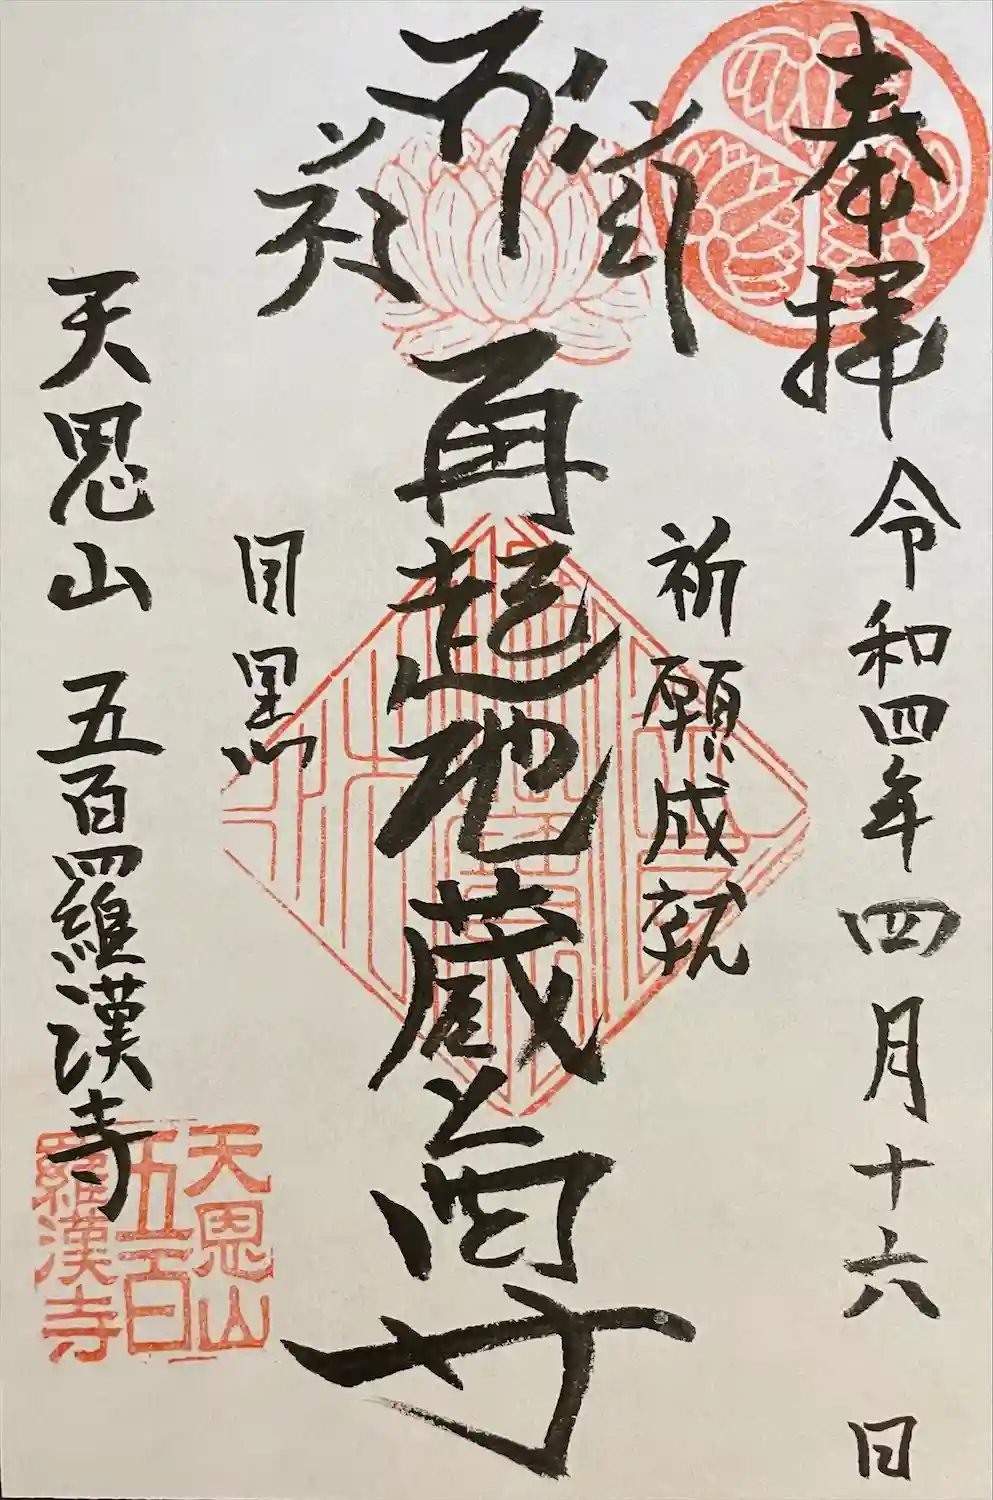 奉拝 令和四年四月十六日
祈願成就
再起地蔵尊
目黒
天恩山 五百羅漢寺
天恩山
五百
羅漢寺